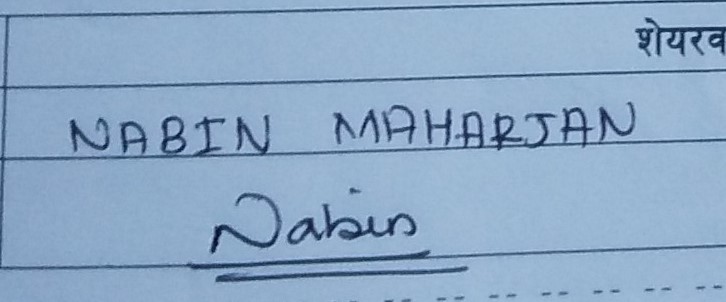 NABIN MAHARJAN
Nabin